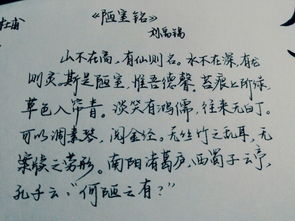 杜甫
《陋室铭》
刘禹锡
山不在高，有仙则名。水不在深，有龙
则灵。斯是陋室，惟吾德馨。苔痕上阶绿，
草色入帘青。谈笑有鸿儒，往来无白丁。
可以调素琴，阅金经。无丝竹之乱耳，无
案牍之劳形。南阳诸葛庐，西蜀子云亭，
孔子云：“何陋之有？”